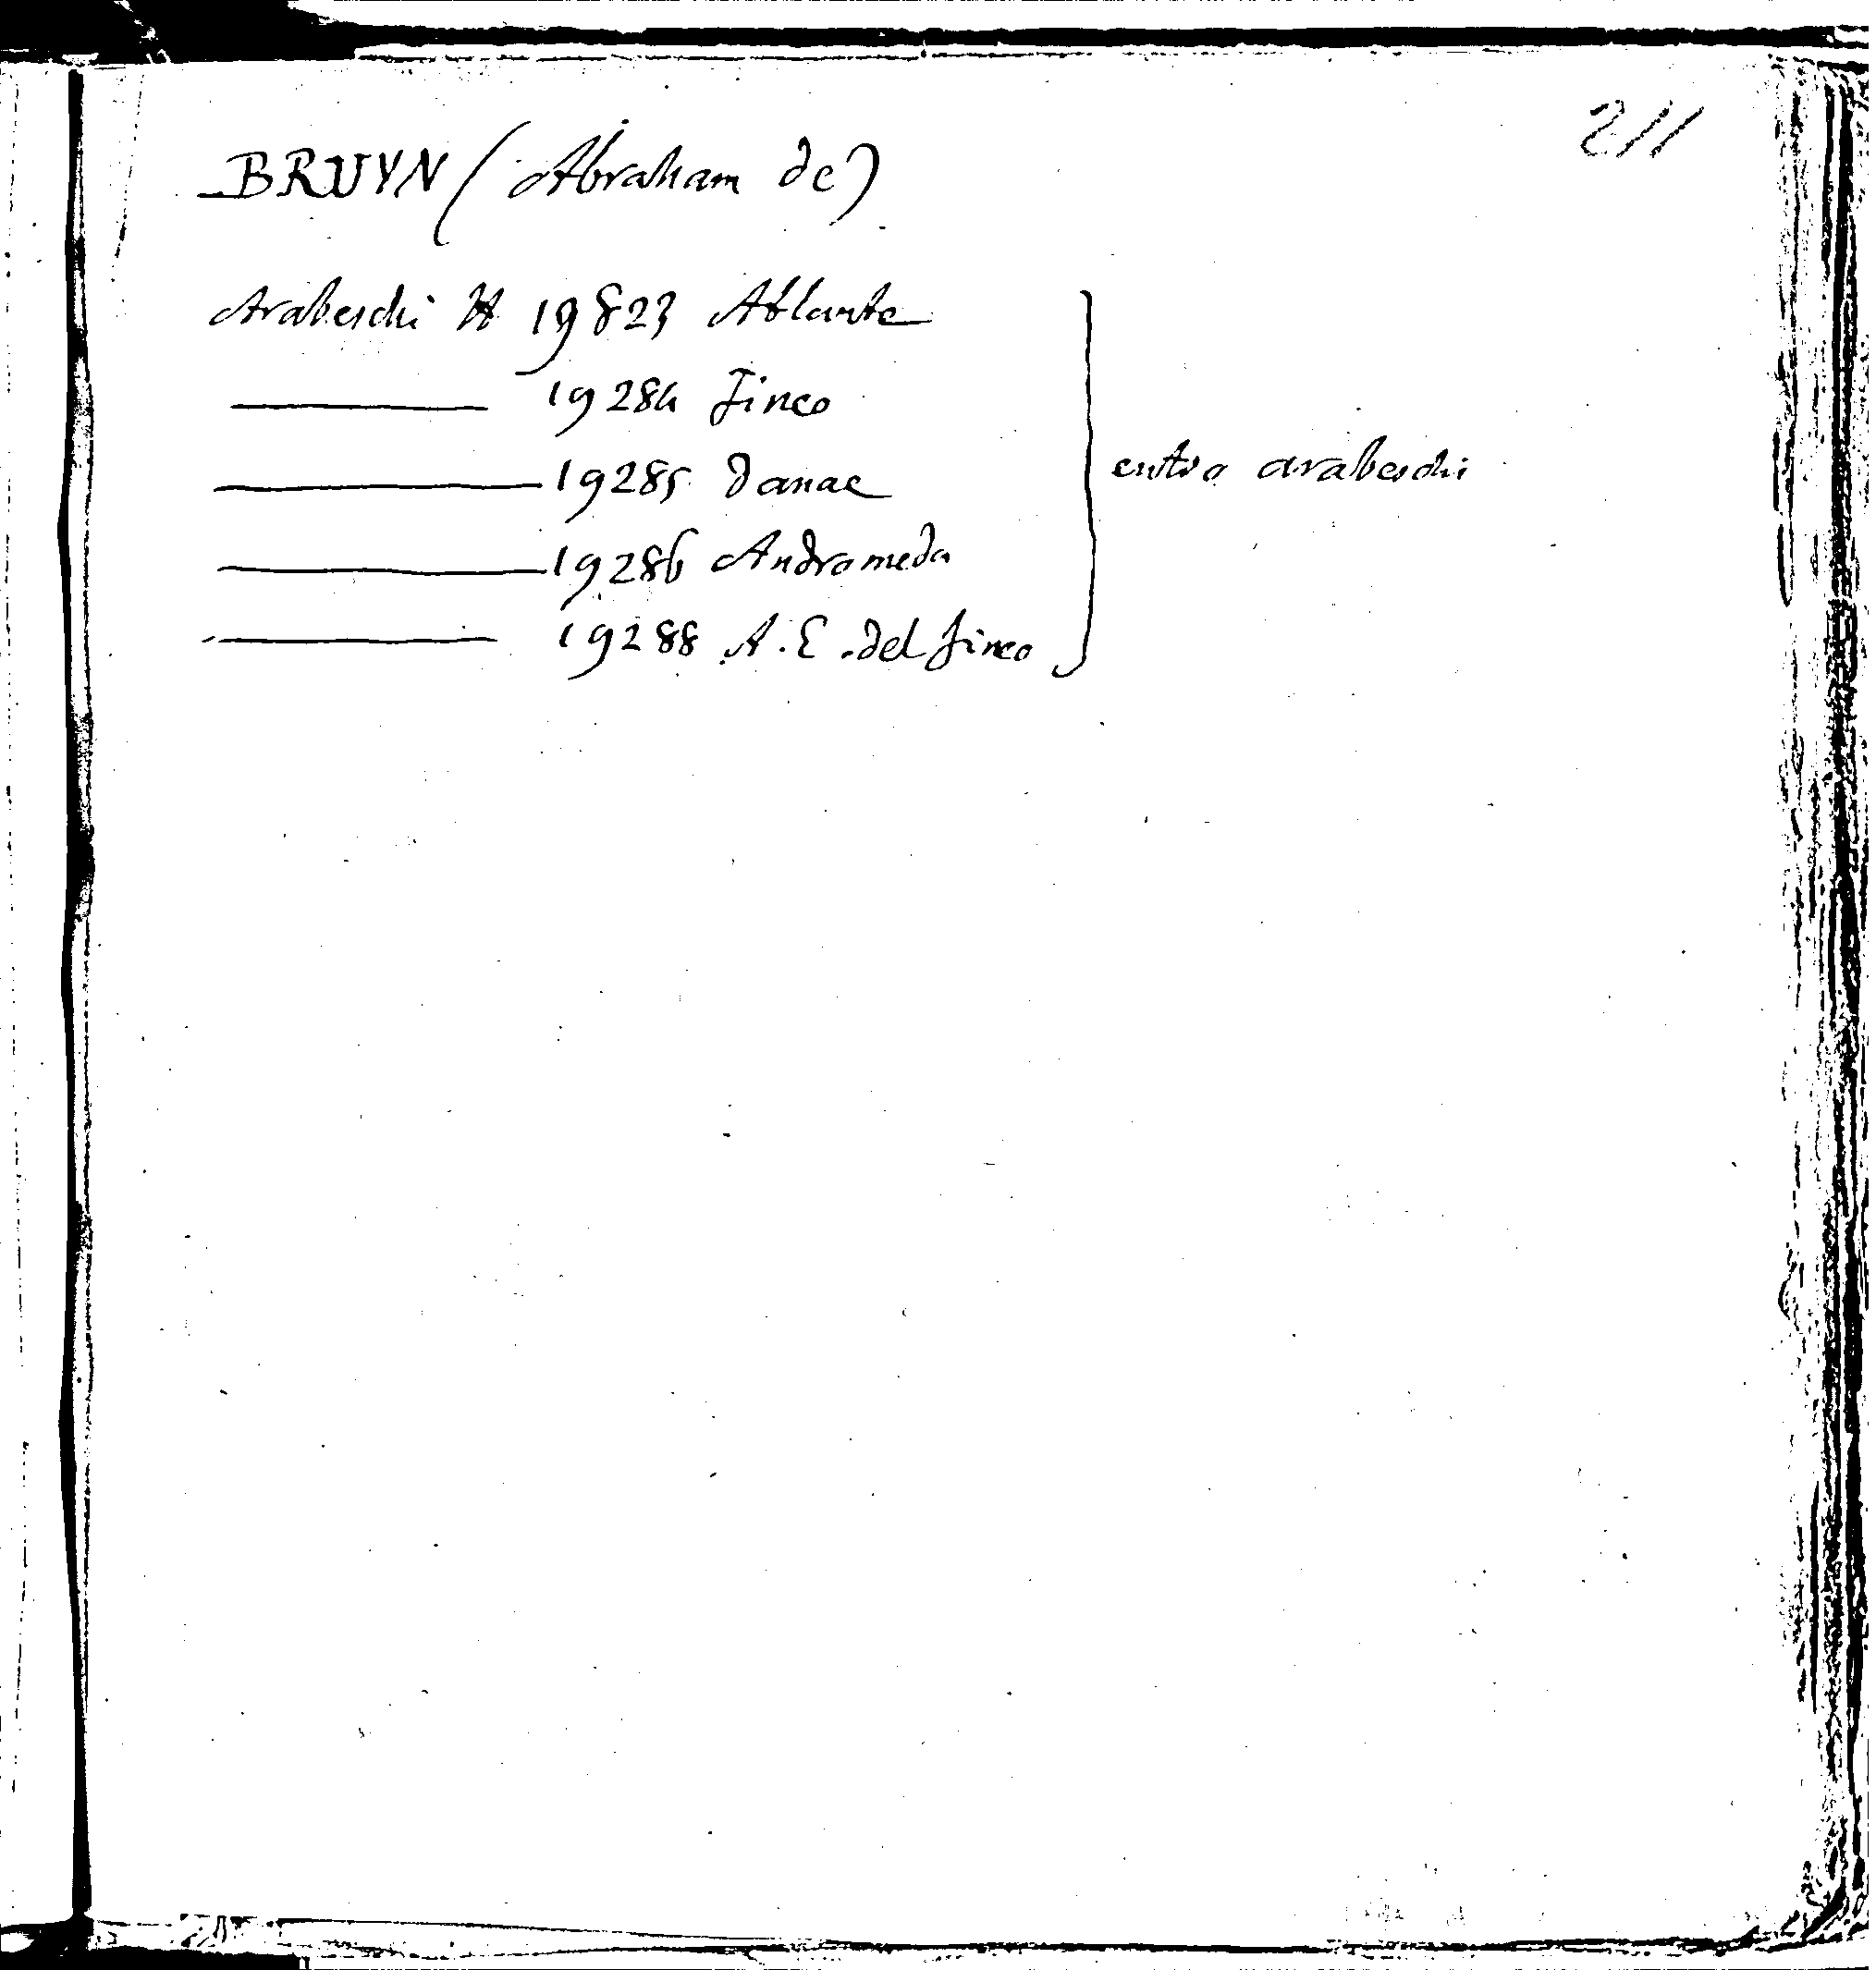 211
BRUYN (Abraham de)
Arabeschi H 19823 Atlante
19284 Fineo
19285 Danae
entro arabeschi
19286 Andromeda
19288 A. E. del Fineo